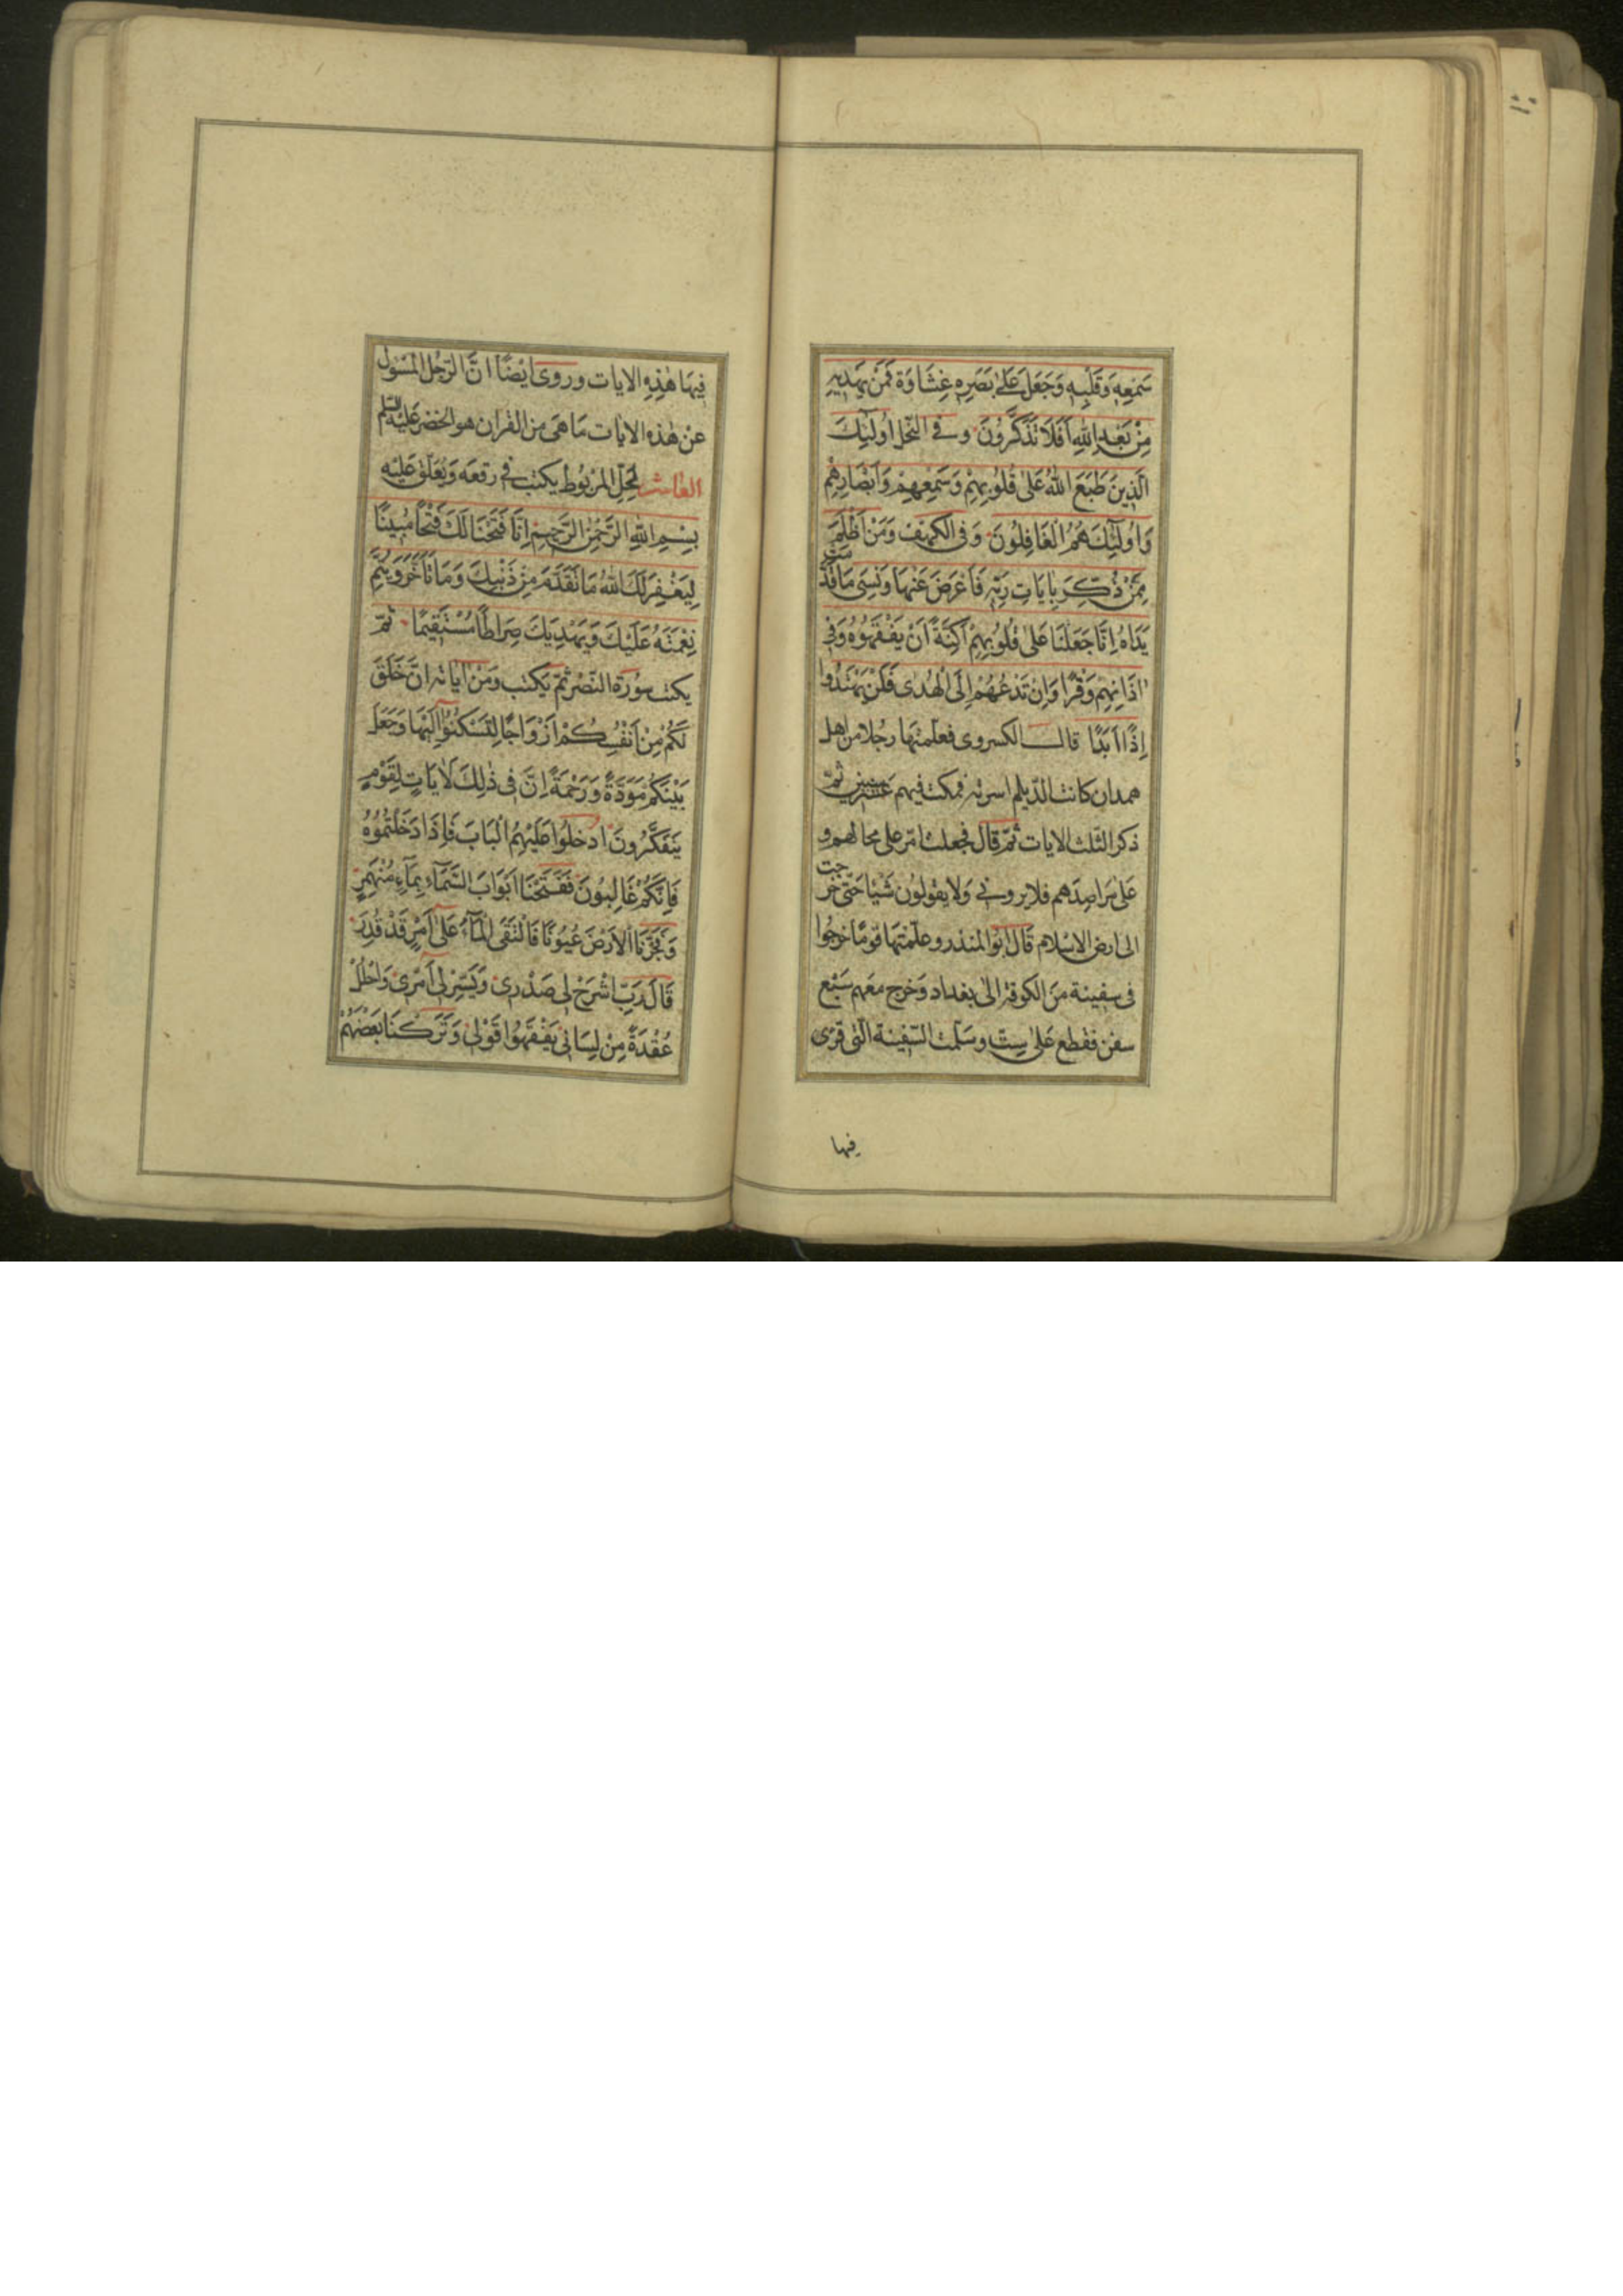 سَمْعِهِ وَقَلْبِهِ وَجَعَلَ عَلىٰ بَصَرِهِ غِشَاوَةً فَمَنْ يَهْدِيهِ
مِنْ بَعْدِ اللّٰهِ اَفَلَا تَذَكَّرُونَ وفى النّحل اُولٰٓئِكَ
الَّذِينَ طَبَعَ اللّٰهُ عَلىٰ قُلُوبِهِمْ وَسَمْعِهِمْ وَاَبْصَارِهِمْ
وَاُولٰٓئِكَ هُمُ الْغَافِلُونَ وَفى الكهف وَمَنْ اَظْلَمُ
مِمَّنْ ذُكِّرَ بِاٰيَاتِ رَبِّهِ فَاَعْرَضَ عَنْهَا وَنَسِىَ مَا قَدَّمَتْ
يَدَاهُ اِنَّا جَعَلْنَا عَلىٰ قُلُوبِهِمْ اَكِنَّةً اَنْ يَفْقَهُوهُ وَفِى
اٰذَانِهِمْ وَقْرًا وَاِنْ تَدْعُهُمْ اِلَى الْهُدٰى فَلَنْ يَهْتَدُوا
اِذًا اَبَدًا قال الكسروى فعلّمتها رجُلا من اهل
همدان كانت الدّيلم اسرته فمكث فيهم عشر سنين ثمّ
ذكر الثّلث الايات ثمّ قال فجعلت امّر على محالهم و
عَلىٰ مَراصِدَهم فلا يرونى وَلا يقولون شَيْئا حَتّى خرجت
الى ارض الاسْلام قال ابو المنذر وعلّمتها قومًا خرجُوا
فى سفينة منَ الكوفة الىٰ بغداد وَخرج معَهم سَبْع
سفن فقطع عَلىٰ سِتّ وسَلّمت السّفينة الّتى قرئ
فيها
فِيهَا هٰذِهِ الايات وروى ايْضًا انَّ الرّجُل المسْؤل
عنْ هٰذه الايات مَا هى من القرآن هو الخضر عَليْه السّلم
العاشر لحِلّ المرْبُوط يكتب فى رقعَه وَيُعَلّق عَليْه
بِسْمِ اللّٰهِ الرَّحْمٰنِ الرَّحِيمِ اِنَّا فَتَحْنَا لَكَ فَتْحًا مُبِينًا
لِيَغْفِرَ لَكَ اللّٰهُ مَا تَقَدَّمَ مِنْ ذَنْبِكَ وَمَا تَاَخَّرَ وَيُتِمَّ
نِعْمَتَهُ عَلَيْكَ وَيَهْدِيَكَ صِرَاطًا مُسْتَقِيمًا ثمّ
يكتب سورة النّصْر ثمّ يكتب وَمِنْ اٰيَاتِهِ اَنْ خَلَقَ
لَكُمْ مِنْ اَنْفُسِكُمْ اَزْوَاجًا لِتَسْكُنُوا اِلَيْهَا وَجَعَلَ
بَيْنَكُمْ مَوَدَّةً وَرَحْمَةً اِنَّ فِى ذٰلِكَ لَاٰيَاتٍ لِقَوْمٍ
يَتَفَكَّرُونَ ادخلُوا عَلَيْهِمُ الْبَابَ فَاِذَا دَخَلْتُمُوهُ
فَاِنَّكُمْ غَالِبُونَ فَفَتَحْنَا اَبْوَابَ السَّمَآءِ بِمَآءٍ مُنْهَمِرٍ
وَفَجَّرْنَا الْاَرْضَ عُيُونًا فَالْتَقَى الْمَآءُ عَلىٰ اَمْرٍ قَدْ قُدِرَ
قَالَ رَبِّ اشْرَحْ لِى صَدْرِى وَيَسِّرْ لِى اَمْرِى وَاحْلُلْ
عُقْدَةً مِنْ لِسَانِى يَفْقَهُوا قَوْلِى وَتَرَكْنَا بَعْضَهُمْ